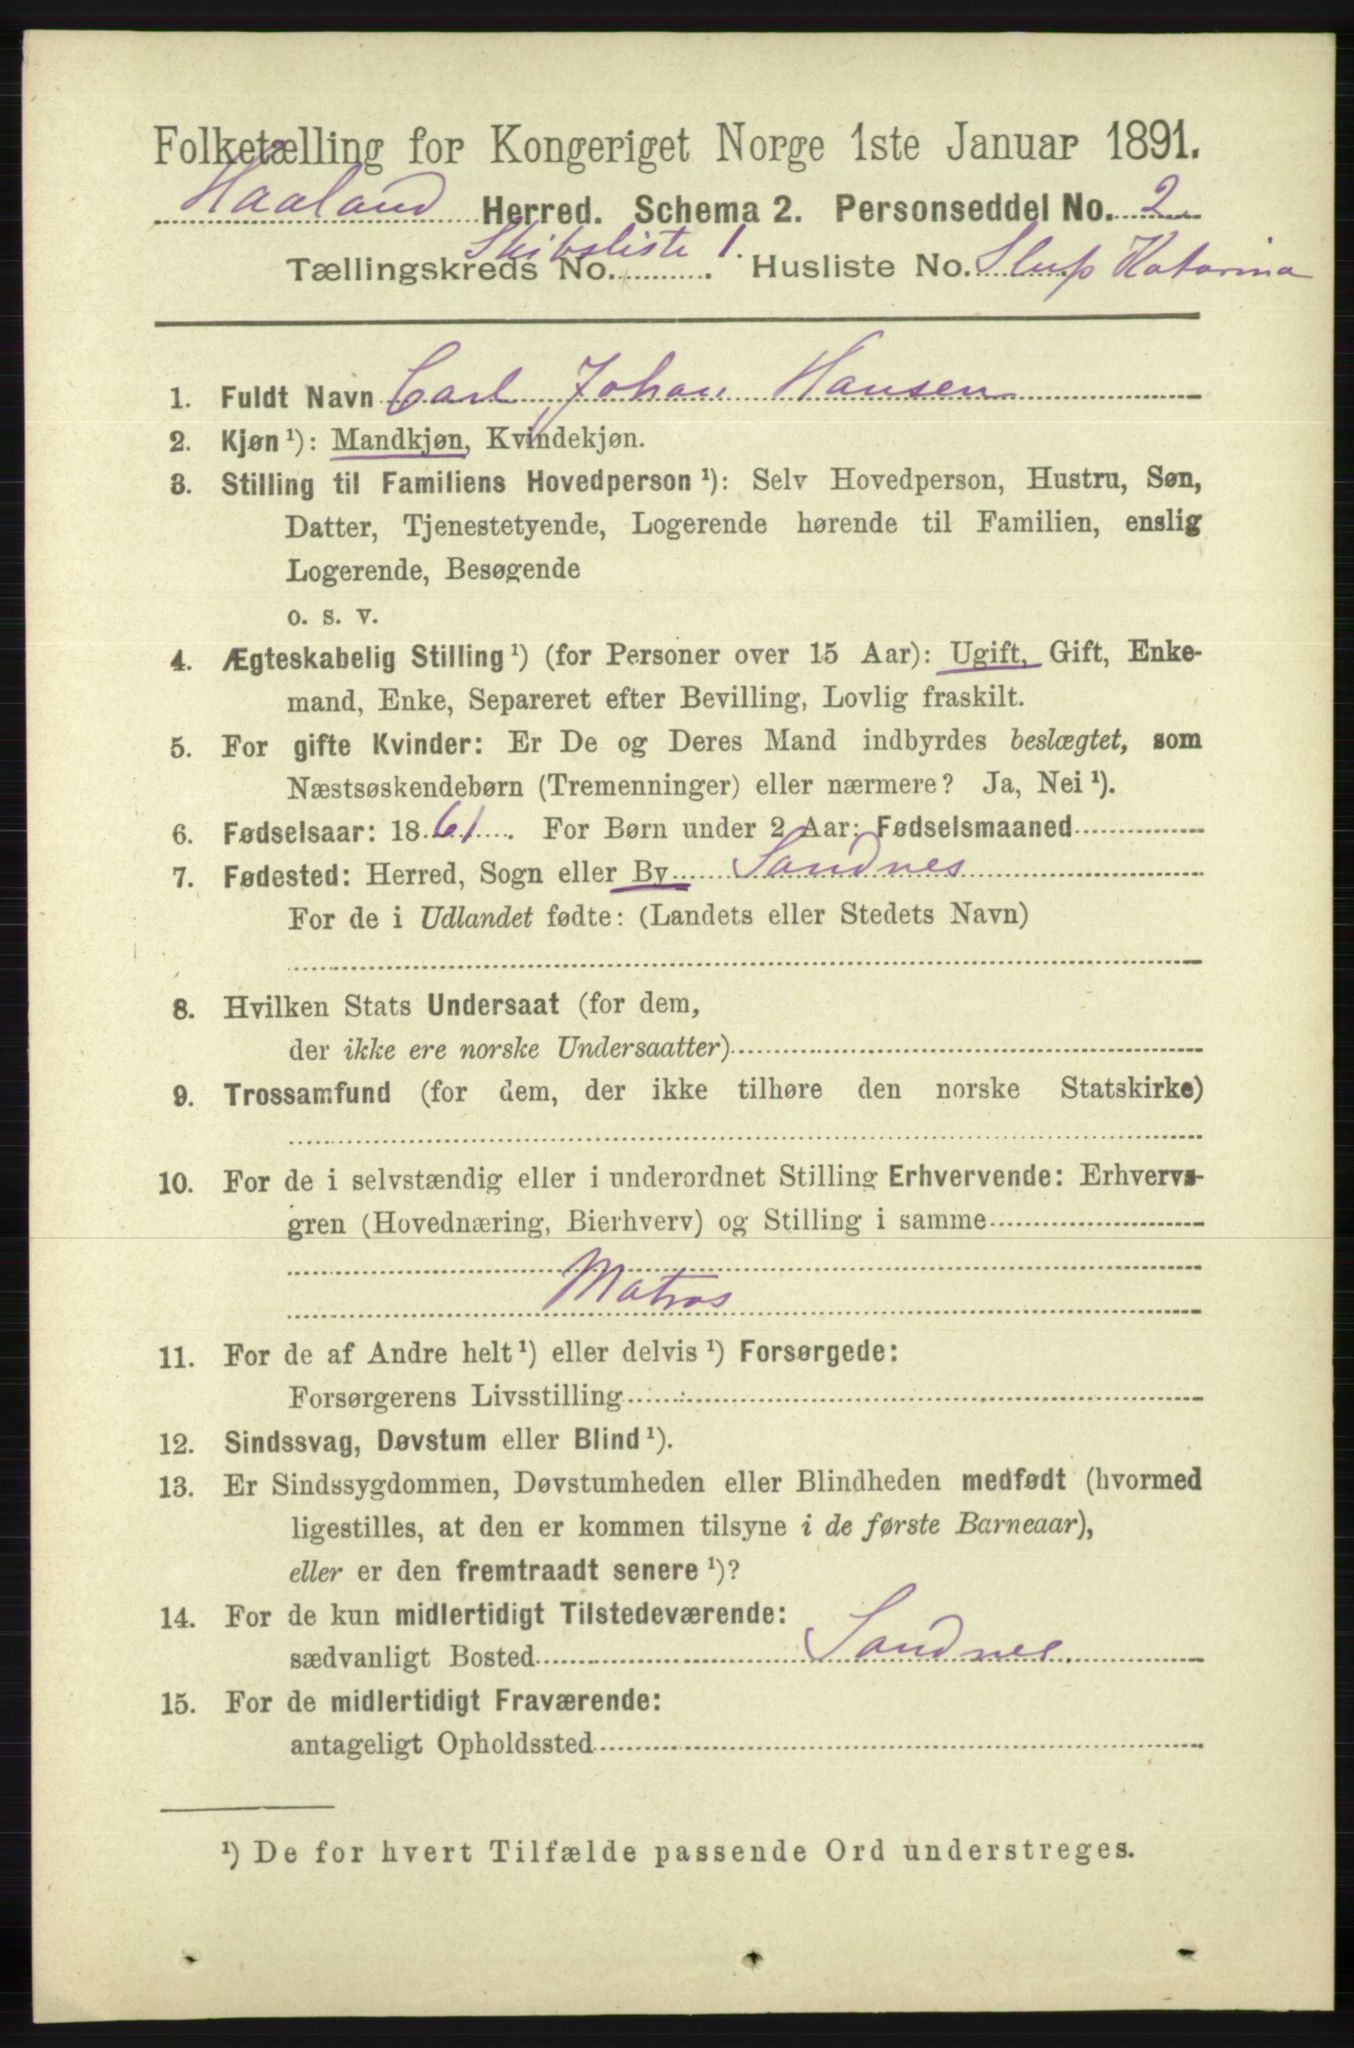 Folketælling for Kongeriget Norge 1ste Januar 1891.
Haaland Herred. Schema 2. Personseddel No. 2
Skibsliste 1.
Tællingskreds No. . Husliste No. Slup Katarina
1. Fuldt Navn Carl Johan Hansen
2. Kjøn ¹): Mandkjøn, Kvindekjøn.
3. Stilling til Familiens Hovedperson ¹): Selv Hovedperson, Hustru, Søn,
Datter, Tjenestetyende, Logerende hørende til Familien, enslig
Logerende, Besøgende
o. s. v.
4. Ægteskabelig Stilling ¹) (for Personer over 15 Aar): Ugift, Gift, Enke-
mand, Enke, Separeret efter Bevilling, Lovlig fraskilt.
5. For gifte Kvinder: Er De og Deres Mand indbyrdes beslægtet, som
Næstsøskendebørn (Tremenninger) eller nærmere? Ja, Nei ¹).
6. Fødselsaar: 1861. For Børn under 2 Aar: Fødselsmaaned
7. Fødested: Herred, Sogn eller By Sandnes
For de i Udlandet fødte: (Landets eller Stedets Navn)
8. Hvilken Stats Undersaat (for dem,
der ikke ere norske Undersaatter)
9. Trossamfund (for dem, der ikke tilhøre den norske Statskirke)
10. For de i selvstændig eller i underordnet Stilling Erhvervende: Erhvervs-
gren (Hovednæring, Bierhverv) og Stilling i samme
Matros
11. For de af Andre helt ¹) eller delvis ¹) Forsørgede:
Forsørgerens Livsstilling
12. Sindssvag, Døvstum eller Blind ¹).
13. Er Sindssygdommen, Døvstumheden eller Blindheden medfødt (hvormed
ligestilles, at den er kommen tilsyne i de første Barneaar),
eller er den fremtraadt senere ¹)?
14. For de kun midlertidigt Tilstedeværende:
sædvanligt Bosted Sandnes.
15. For de midlertidigt Fraværende:
antageligt Opholdssted
¹) De for hvert Tilfælde passende Ord understreges.